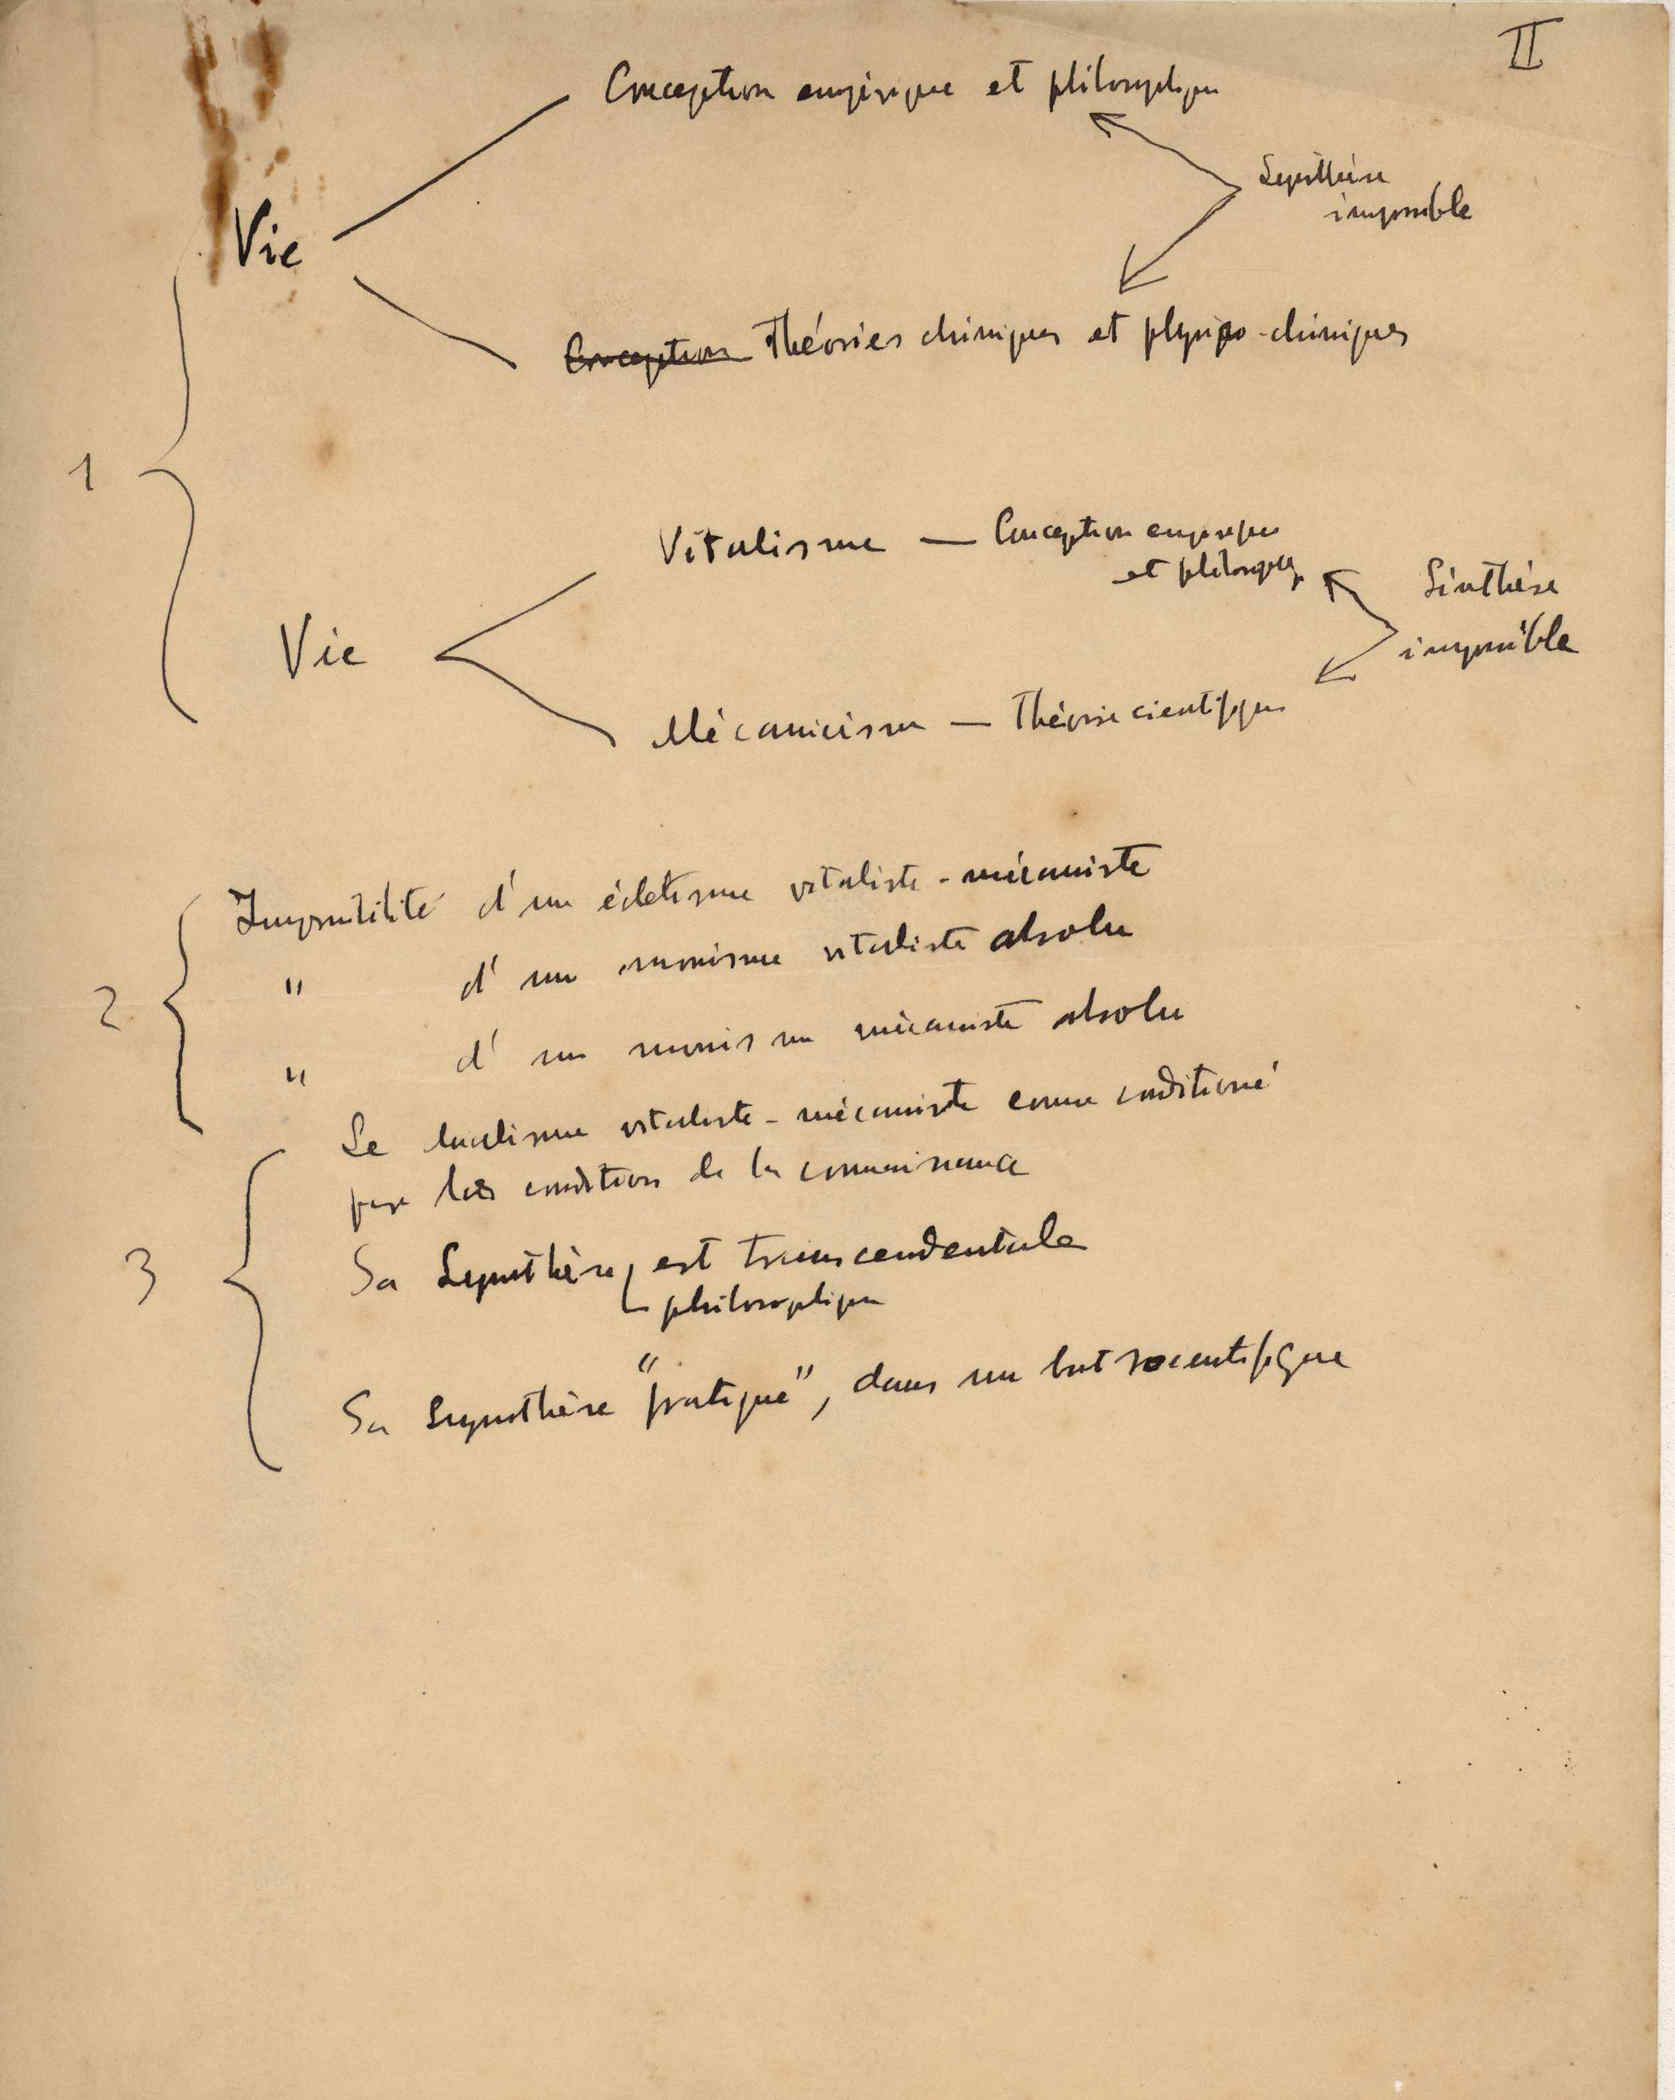 II
Conception empirique et philosophique
Synthèse
impossible
Vie
Conception Théories chimiques et physico-chimiques
1
Vitalisme — Conception empirique
et philosophique
Sinthèse
impossible
Vie
Mécanicisme — Théorie cientifique
Impossibilité d'un écletisme vitaliste-mécaniste
" d'un monisme vitaliste absolu
2
" d'un monisme mécaniste absolu
Le dualisme vitaliste-mécaniste comme conditioné
par les condition de la connaissance
3
Sa Synthèse est transcendentale
philosophique
Sa Synthèse "pratique", dans un but scientifique